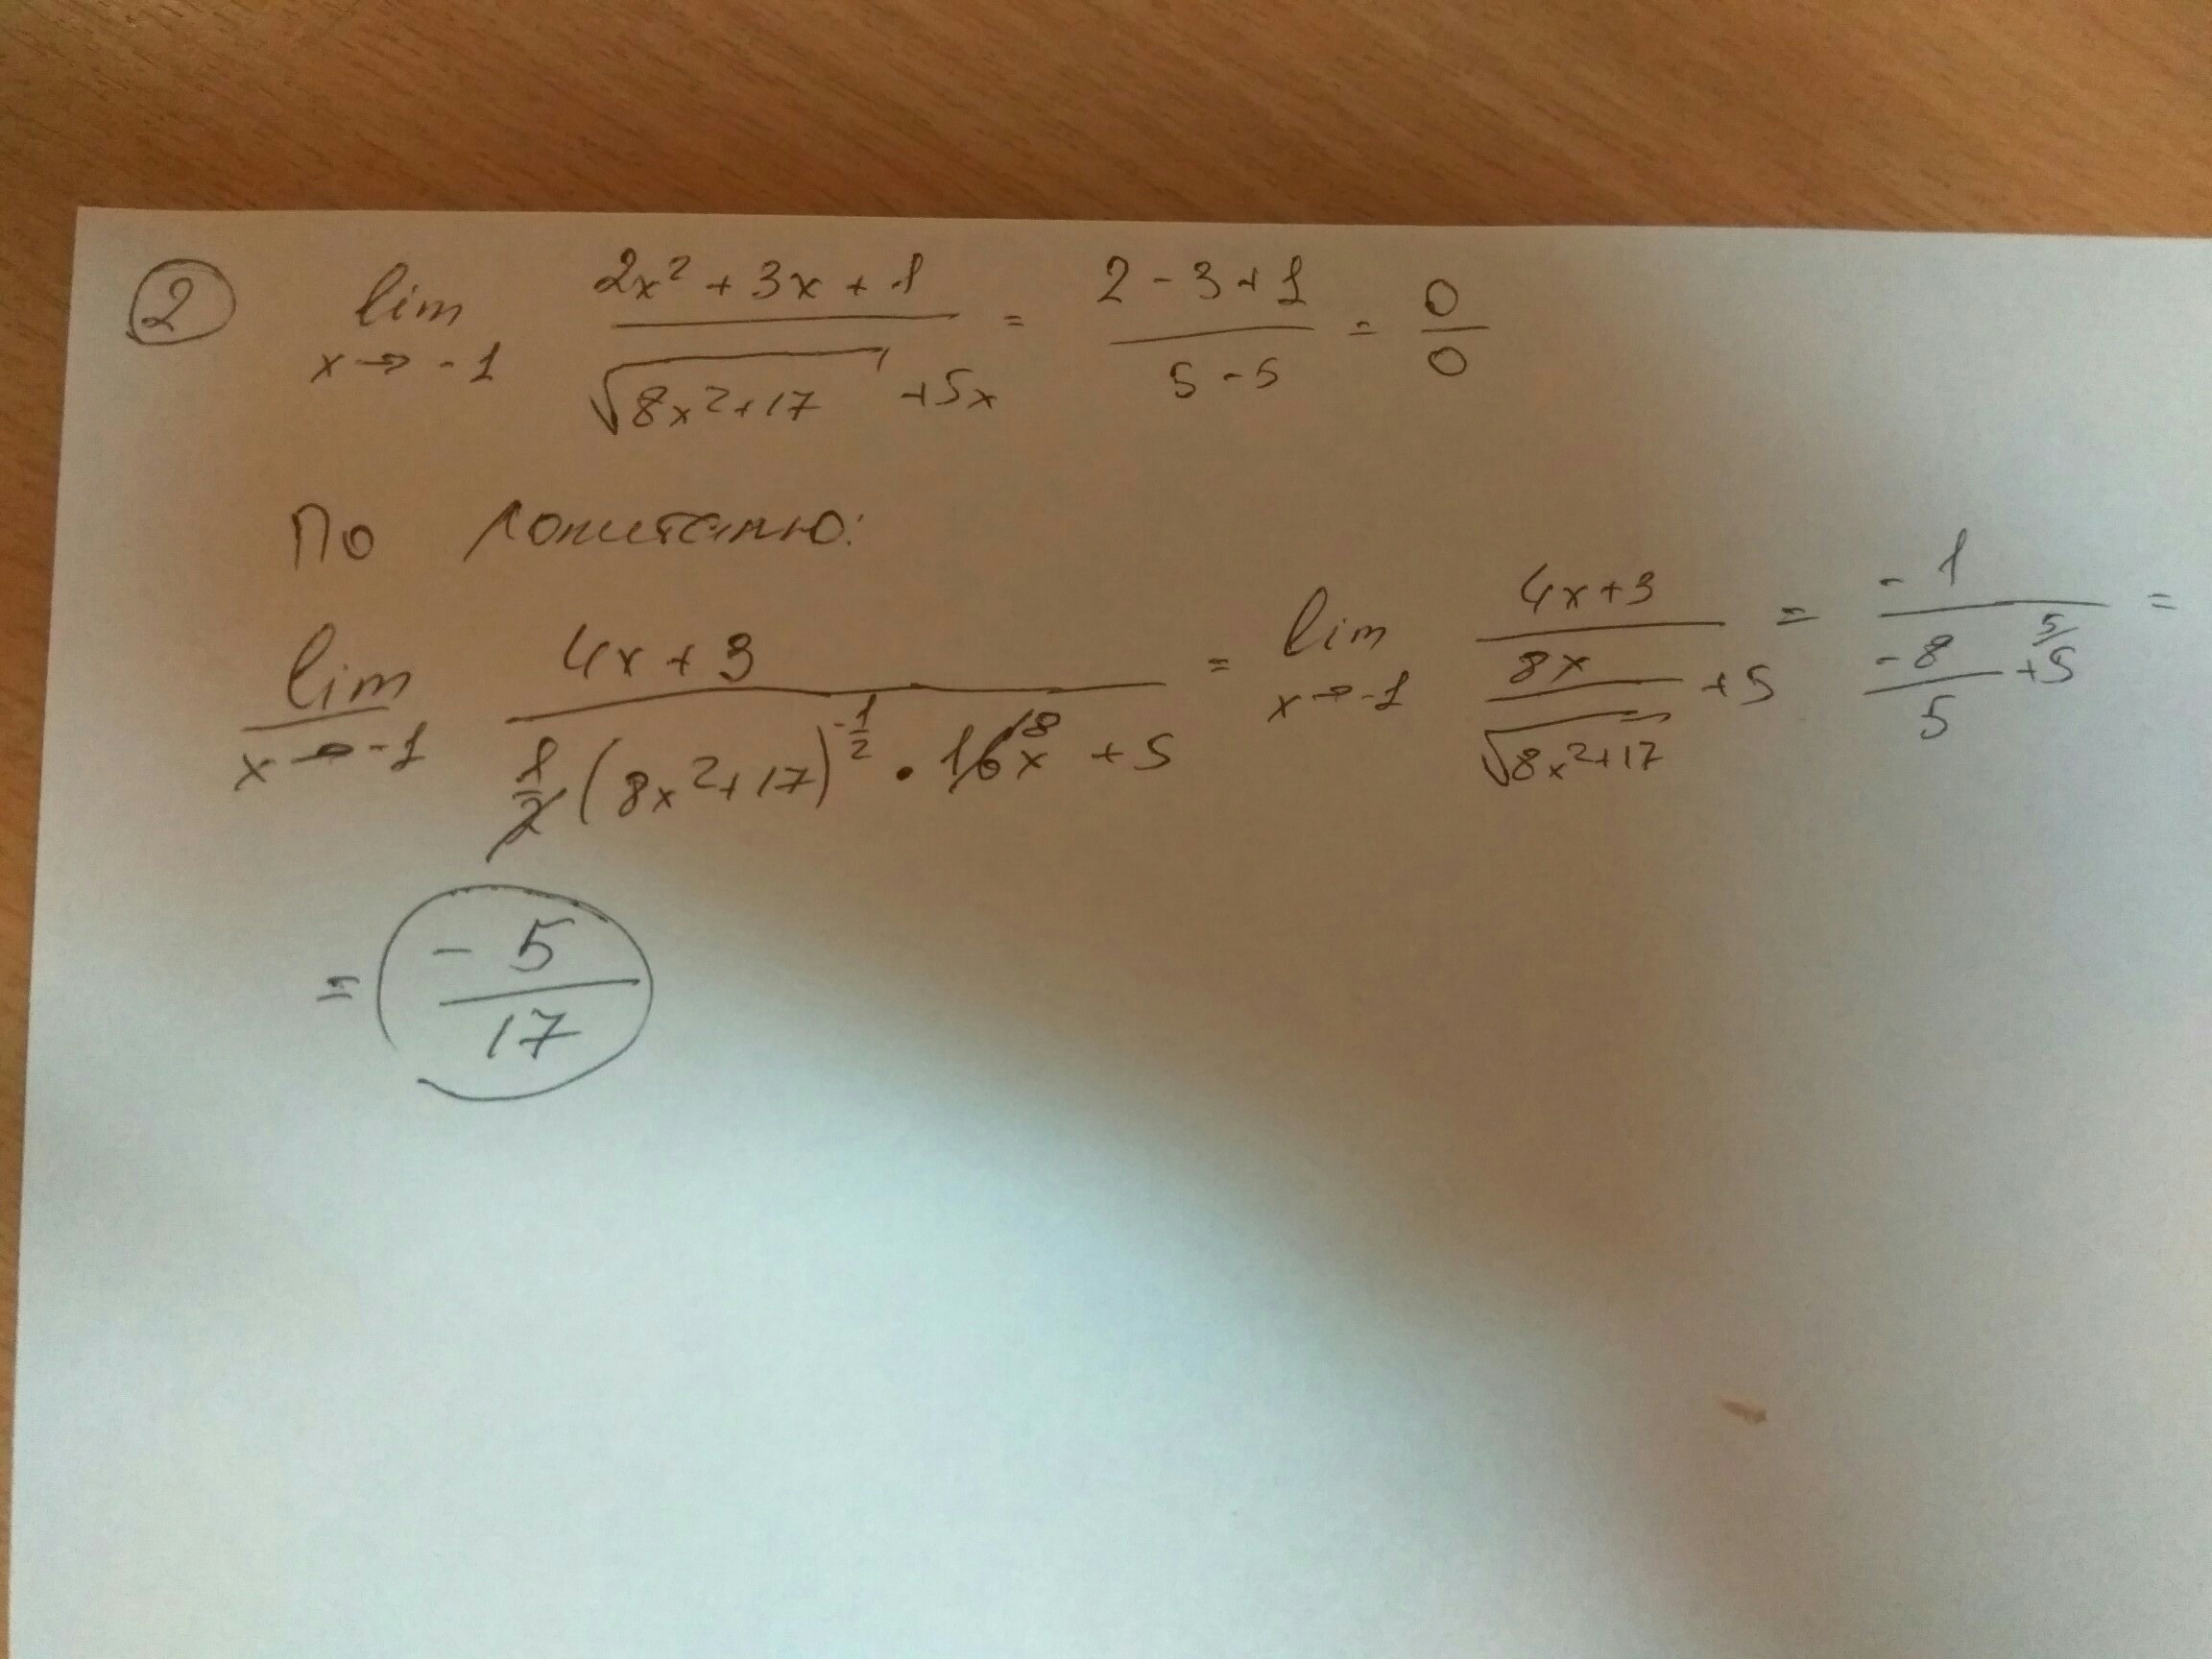 2 lim x→-1 (2x²+3x+1)/(√(8x²+17) +5x) = (2-3+1)/(5-5) = 0/0
По лопиталю:
lim x→-1 (4x+3)/(1/2(8x²+17)^(-1/2) · 16x 8 +5) = lim x→-1 (4x+3)/(8x/√(8x²+17) +5) = -1/(-8/5 +5 5/) =
= -5/17